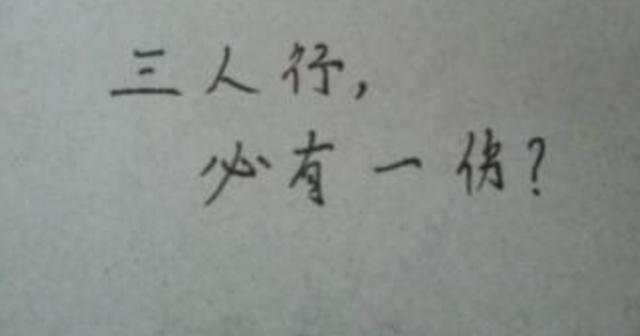 三人行,
必有一伤?